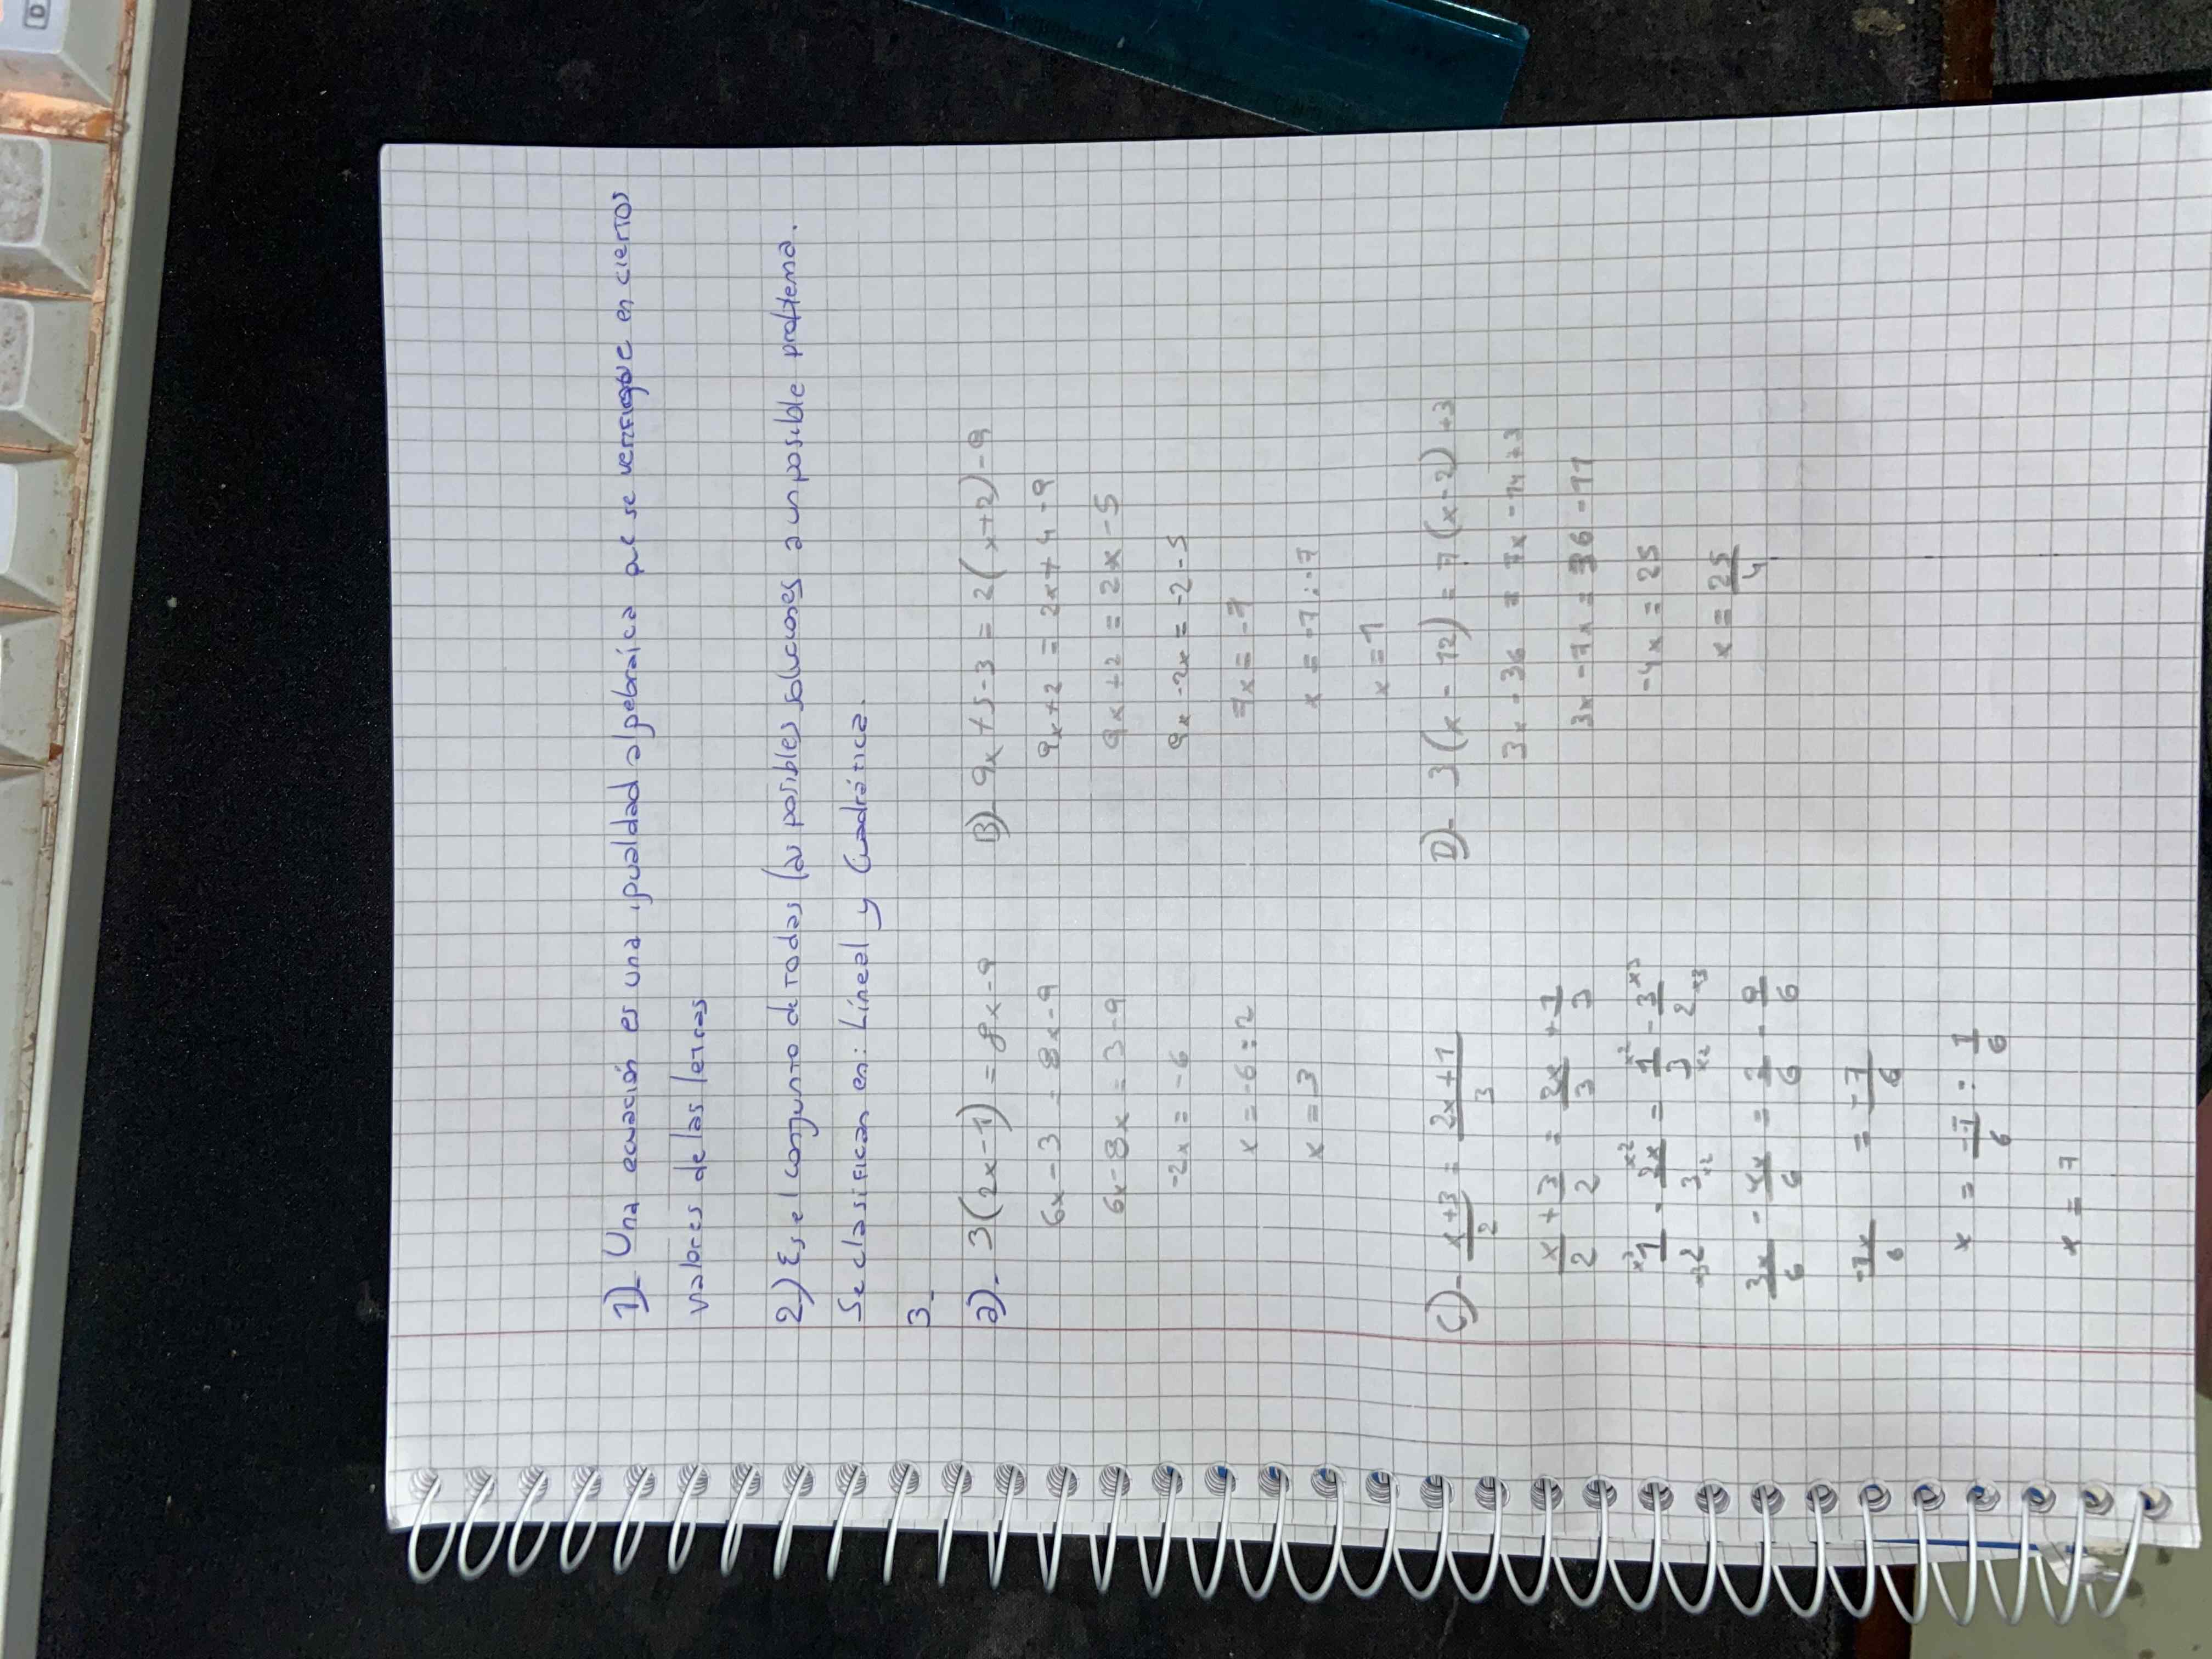 1)- Una ecuación es una igualdad algebraica que se verifique en ciertos
valores de las letras
2) Es el conjunto de todas las posibles soluciones a un posible problema.
Se clasifican en: Líneal y Cuadrática.
3-
a)- 3(2x-1) = 8x-9
6x-3 = 8x-9
6x-8x = 3-9
-2x = -6
x = -6:2
x = 3
B)- 9x+5-3 = 2(x+2)-9
9x+2 = 2x+4-9
9x+2 = 2x-5
9x-2x = -2-5
7x = -7
x = -7:-7
x = 1
C)- x+3/2 = 2x+1/3
x/2 + 3/2 = 2x/3 + 1/3
3x/6 - 4x/6 = 2/6 - 9/6
= -7/6
x = -7/6 : 1/6
x = 7
D)- 3(x-12) = 7(x-2)+3
3x-36 = 7x-14+3
3x-7x = 36-11
-4x = 25
x = 25/4
D